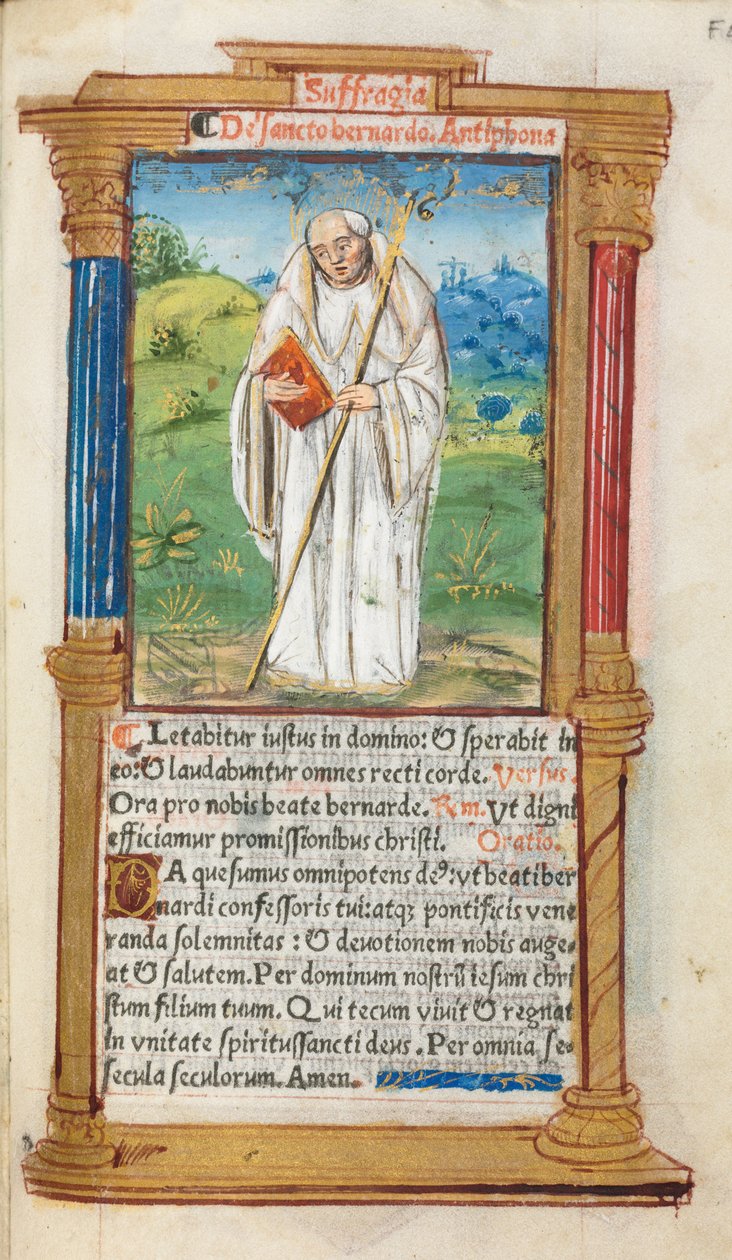 Suffragia
¶ De sancto bernardo. Antiphona
¶ Letabitur iustus in domino: & sperabit in
eo: & laudabuntur omnes recti corde. Versus.
Ora pro nobis beate bernarde. Rm. Vt digni
efficiamur promissionibus christi. Oratio.
DA quesumus omnipotens deꝰ: vt beati ber
nardi confessoris tui: atqꝫ pontificis vene
randa solemnitas: & deuotionem nobis auge-
at & salutem. Per dominum nostrũ iesum chri
stum filium tuum. Qui tecum viuit & regnat
in vnitate spiritussancti deus. Per omnia se-
secula seculorum. Amen.